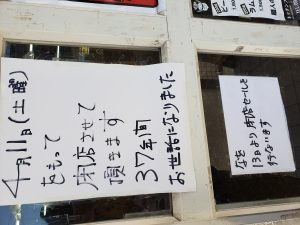 4月11日(土曜)
をもって
閉店させて
頂きます
37年間
お世話になりました
13日より閉店セールを
行ないます